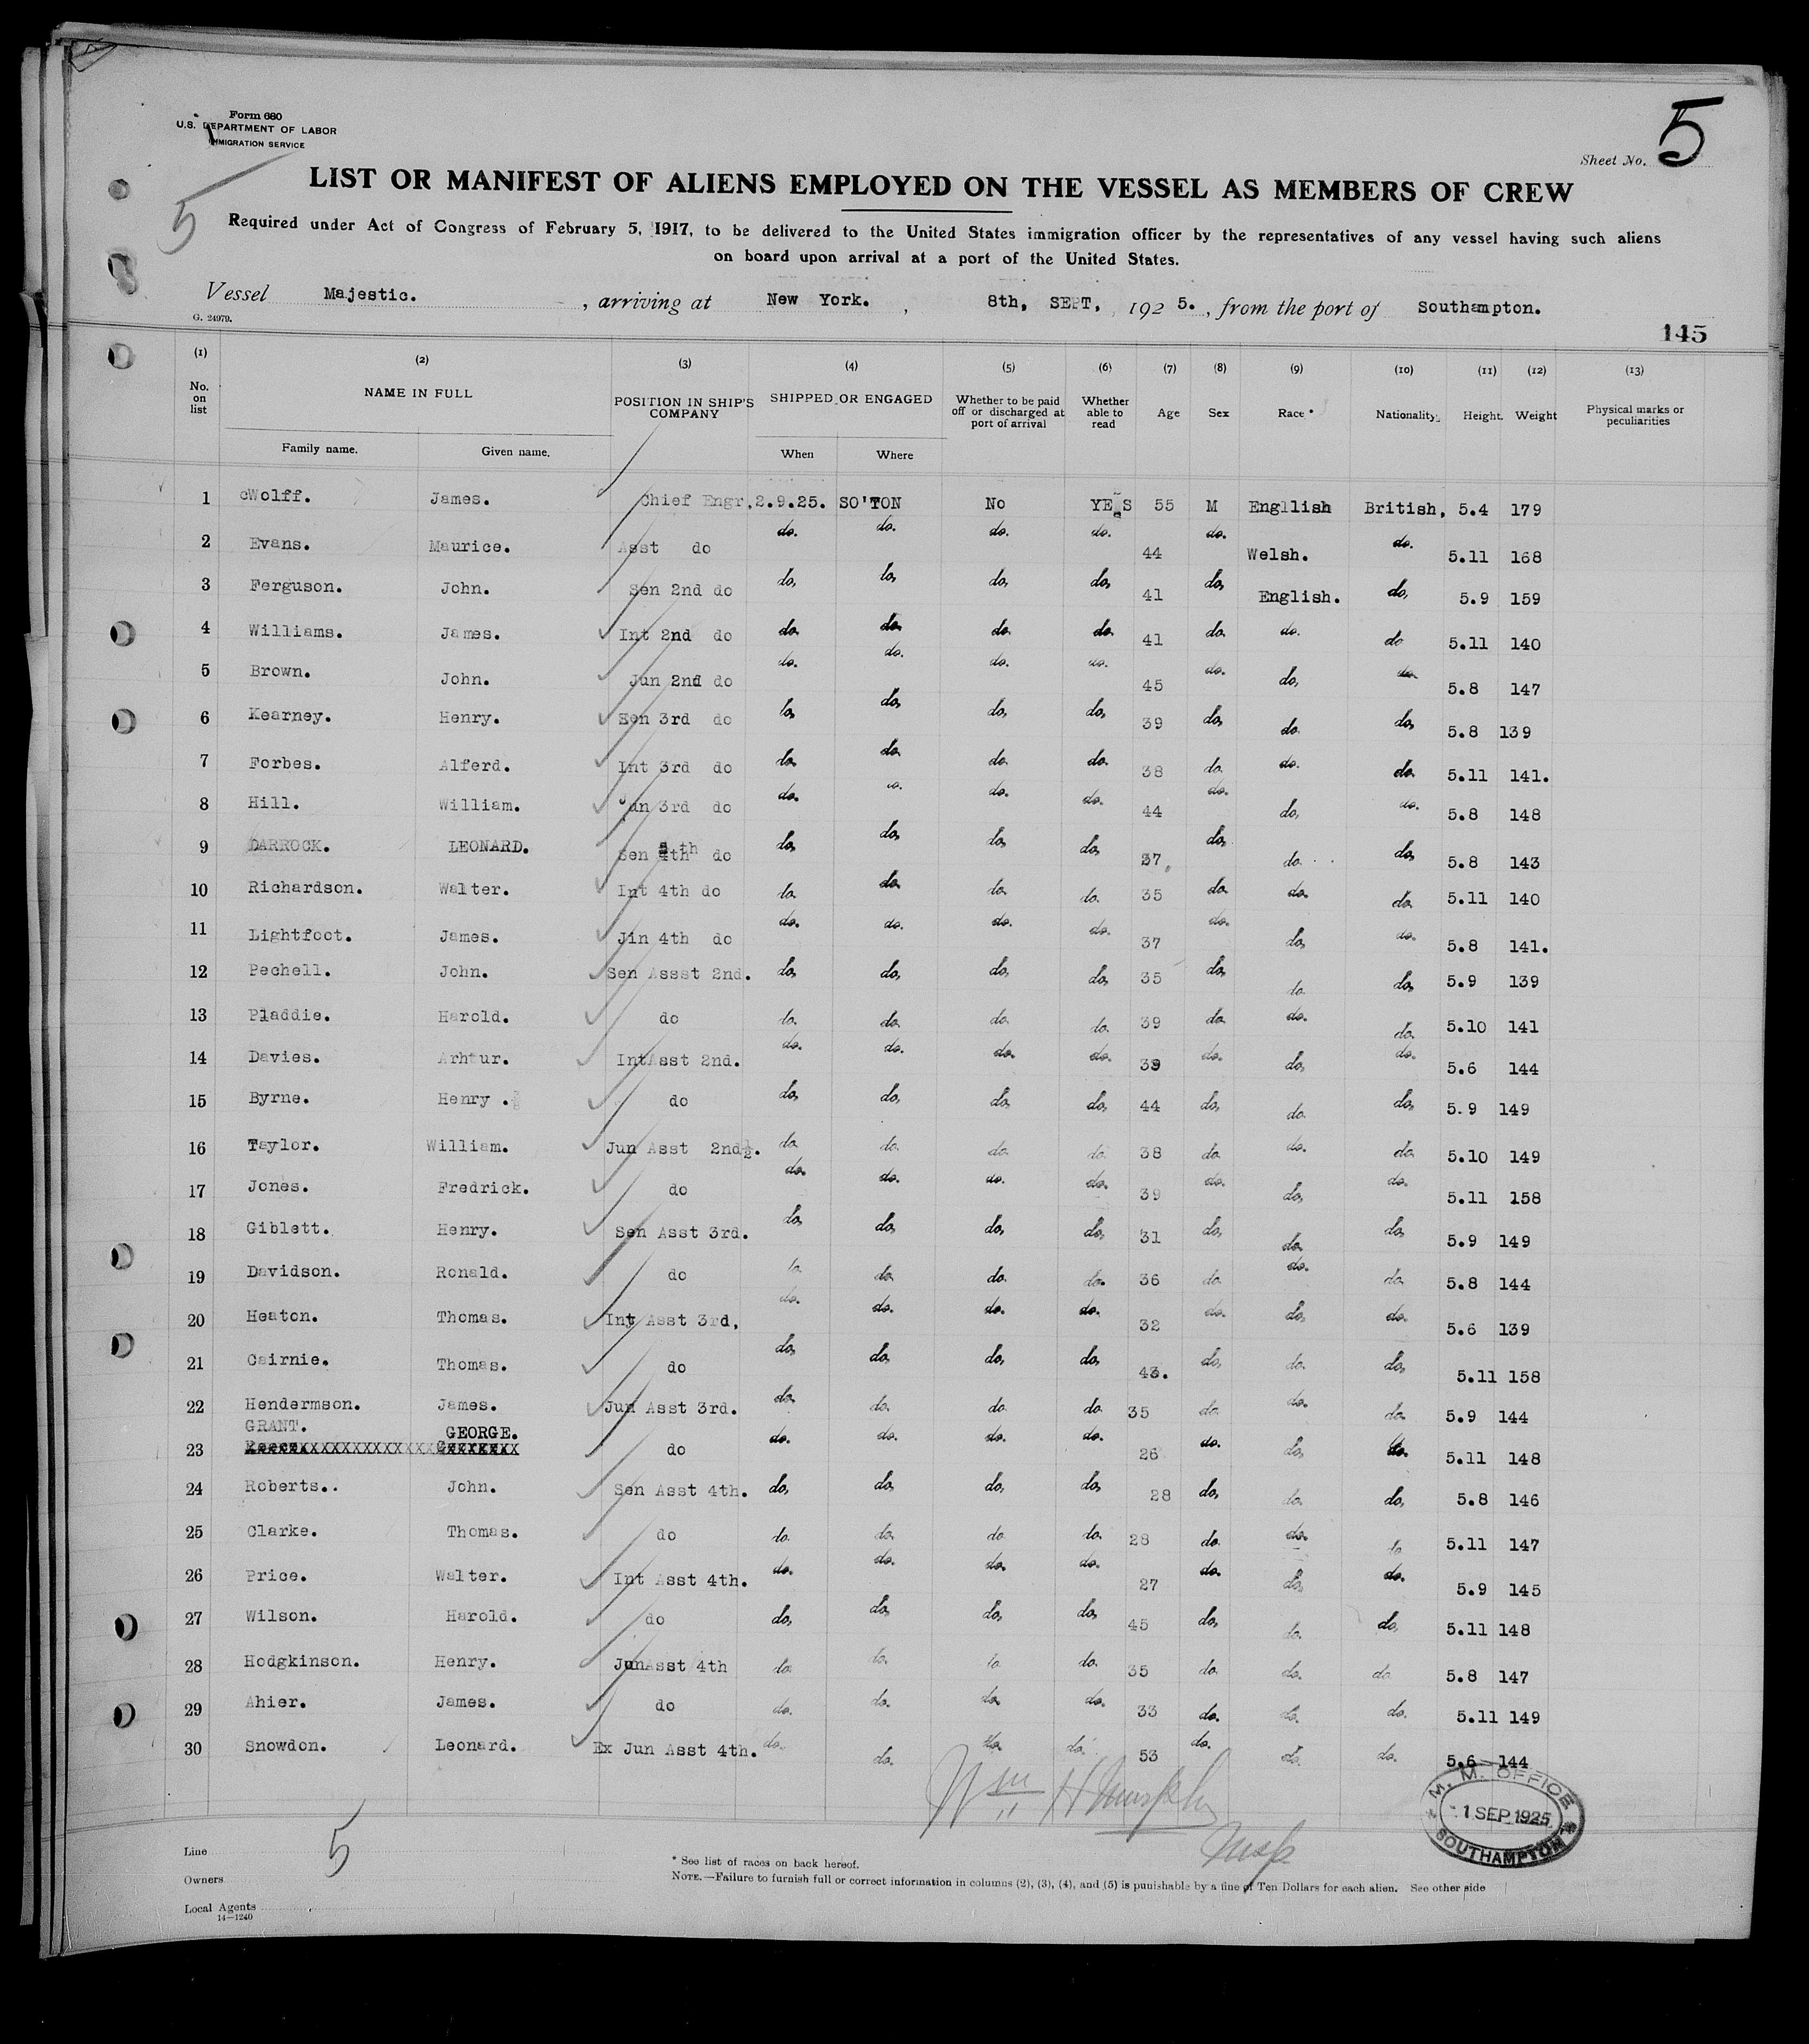 Form 680
U.S. DEPARTMENT OF LABOR
IMMIGRATION SERVICE
Sheet No. 5
LIST OR MANIFEST OF ALIENS EMPLOYED ON THE VESSEL AS MEMBERS OF CREW
5
Required under Act of Congress of February 5, 1917, to be delivered to the United States immigration officer by the representatives of any vessel having such aliens
on board upon arrival at a port of the United States.
Vessel Majestic. , arriving at New York. , 8th, SEPT, 192 5. , from the port of Southampton.
G. 24979.
145
(1) (2) (3) (4) (5) (6) (7) (8) (9) (10) (11) (12) (13)
No. on list NAME IN FULL POSITION IN SHIP'S COMPANY SHIPPED OR ENGAGED Whether to be paid off or discharged at port of arrival Whether able to read Age Sex Race * Nationality. Height. Weight Physical marks or peculiarities
Family name. Given name. When Where
1 Wolff. James. Chief Engr. 2.9.25. SO'TON No YES 55 M Engllish British, 5.4 179
2 Evans. Maurice. Asst do do. do. do. do. 44 do. Welsh. do. 5.11 168
3 Ferguson. John. Sen 2nd do do, do, do, do, 41 do, English. do, 5.9 159
4 Williams. James. Int 2nd do do. do. do. do. 41 do. do. do 5.11 140
5 Brown. John. Jun 2nd do do. do. do. do. 45 do. do, do. 5.8 147
6 Kearney. Henry. Sen 3rd do do, do, do, do, 39 do, do. do, 5.8 139
7 Forbes. Alferd. Int 3rd do do. do. do. do. 38 do. do. do. 5.11 141.
8 Hill. William. Jun 3rd do do. do. do. do. 44 do. do, do. 5.8 148
9 DARROCK. LEONARD. Sen 4th do do, do, do, do, 37. do, do. do, 5.8 143
10 Richardson. Walter. Int 4th do do. do. do. do. 35 do. do. do. 5.11 140
11 Lightfoot. James. Jin 4th do do. do. do. do. 37 do. do, do. 5.8 141.
12 Pechell. John. Sen Assst 2nd. do, do, do, do, 35 do, do. do, 5.9 139
13 Pladdie. Harold. do do. do. do. do. 39 do. do. do. 5.10 141
14 Davies. Arhtur. IntAsst 2nd. do. do. do. do. 39 do. do, do. 5.6 144
15 Byrne. Henry . do do, do, do, do, 44 do, do. do, 5.9 149
16 Taylor. William. Jun Asst 2nd½. do. do. do. do. 38 do. do. do. 5.10 149
17 Jones. Fredrick. do do. do. do. do. 39 do. do, do. 5.11 158
18 Giblett. Henry. Sen Asst 3rd. do, do, do, do, 31 do, do. do, 5.9 149
19 Davidson. Ronald. do do. do. do. do. 36 do. do. do. 5.8 144
20 Heaton. Thomas. Int Asst 3rd, do. do. do. do. 32 do. do, do. 5.6 139
21 Cairnie. Thomas. do do, do, do, do, 43. do, do. do, 5.11 158
22 Hendermson. James. Jun Asst 3rd. do. do. do. do. 35 do. do. do. 5.9 144
GRANT. GEORGE.
23 do do. do. do. do. 26 do. do, do. 5.11 148
24 Roberts.. John. Sen Asst 4th. do, do, do, do, 28 do, do. do, 5.8 146
25 Clarke. Thomas. do do. do. do. do. 28 do. do. do 5.11 147
26 Price. Walter. Int Asst 4th. do. do. do. do. 27 do. do, do. 5.9 145
27 Wilson. Harold. do do, do, do, do, 45 do, do. do, 5.11 148
28 Hodgkinson. Henry. JunAsst 4th do. do. do. do. 35 do. do. do. 5.8 147
29 Ahier. James. do do. do. do. do. 33 do. do. do. 5.11 149
30 Snowdon. Leonard. Ex Jun Asst 4th. do. do. do. do. 53 do. do. do. 5.6 144
Wm H Murphy
Insp
M. M. OFFICE
- 1 SEP 1925
SOUTHAMPTON
5
Line
Owners
Local Agents
14—1240
* See list of races on back hereof.
NOTE.—Failure to furnish full or correct information in columns (2), (3), (4), and (5) is punishable by a fine of Ten Dollars for each alien. See other side